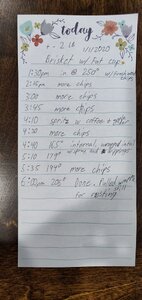 today
2 lb
1/1/2020
Brisket w/ Fat cap
1:30pm in @ 250° w/
2:15pm more chips
3:00 more chips
3:45 more chips
4:10 spritz w/ coffee +
4:30 more chips
4:40 165° internal, wrapped
5:10 179°
5:35 194° more chips
6:00pm 205° Done. Pulled
for resting